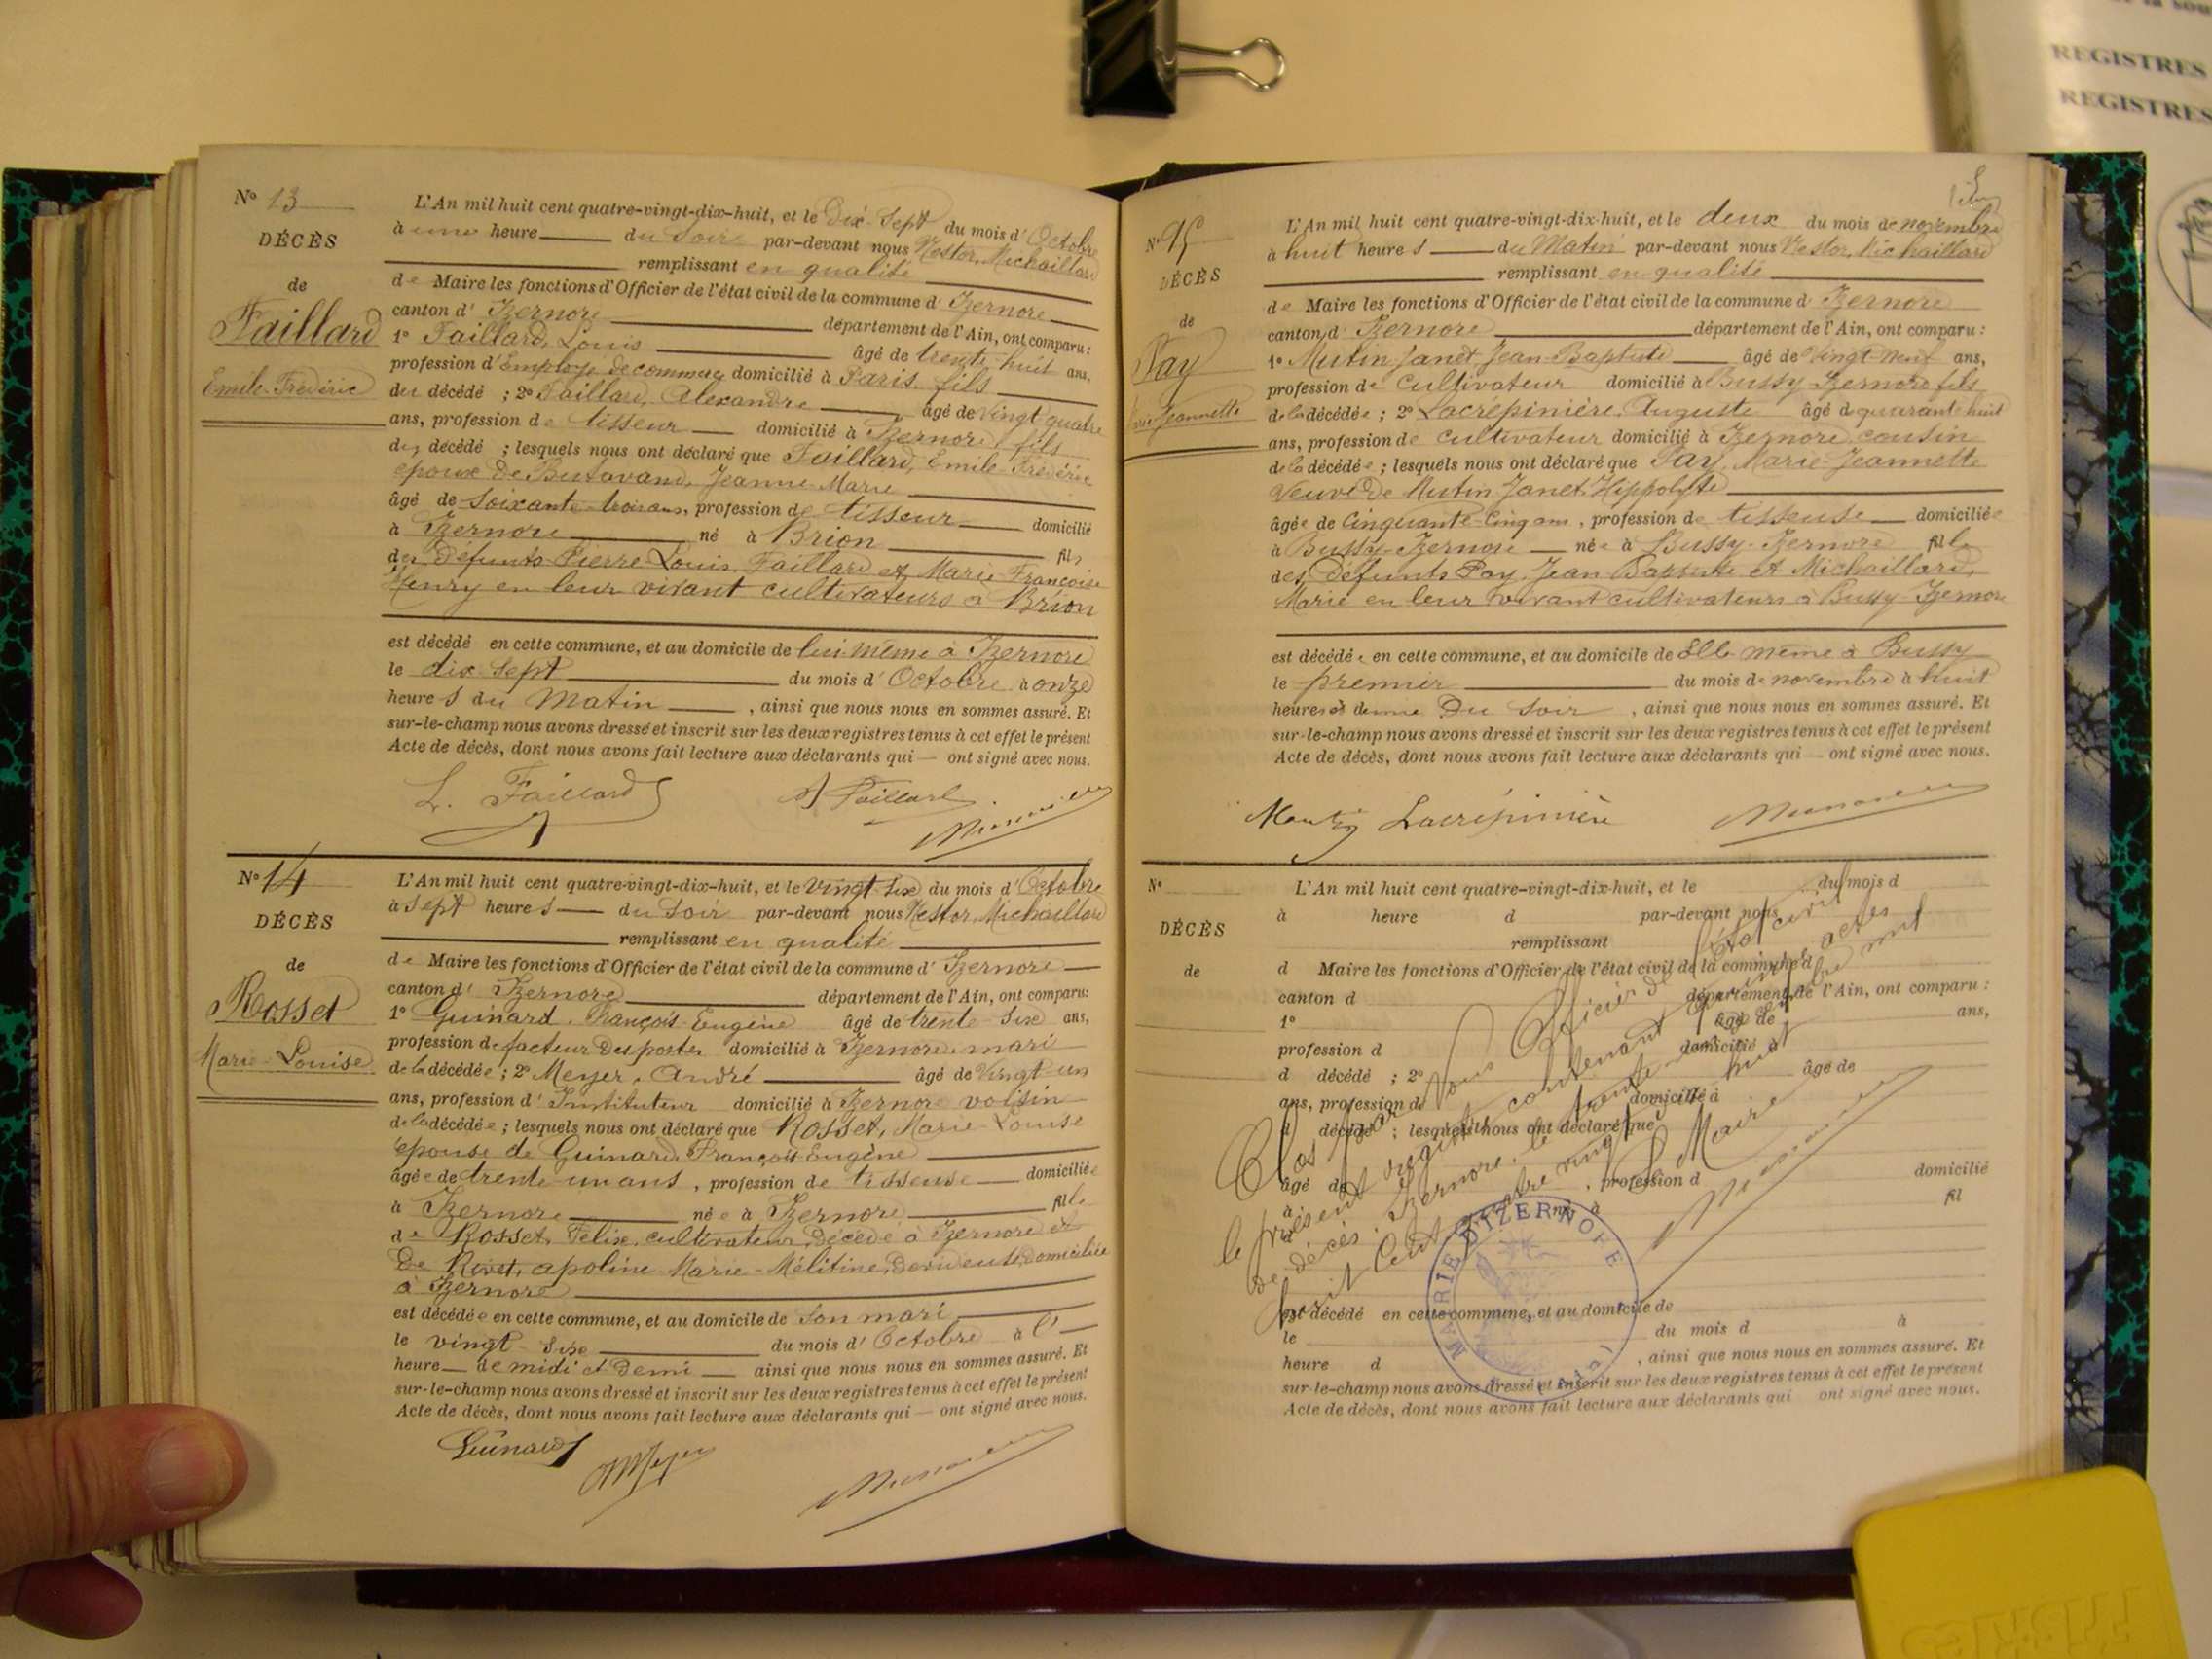 REGISTRES
REGISTRES
N° 13
DÉCÈS
de
Faillard
Emile-Frédéric
L'An mil huit cent quatre-vingt-dix-huit, et le Dix-Sept du mois d'Octobre
à une heure du Soir par-devant nous Nestor Michaillard
remplissant en qualité
de Maire les fonctions d'Officier de l'état civil de la commune d'Izernore
canton d'Izernore département de l'Ain, ont comparu:
1° Faillard, Louis âgé de trente-huit ans,
profession d'Employé de commerce domicilié à Paris fils
du décédé ; 2° Faillard, Alexandre âgé de vingt quatre
ans, profession de tisseur domicilié à Izernore fils
du décédé ; lesquels nous ont déclaré que Faillard, Emile-Frédéric
époux de Butavand, Jeanne-Marie
âgé de soixante-trois ans, profession de tisseur domicilié
à Izernore né à Brion fils
des défunts Pierre-Louis Faillard et Marie-Françoise
Henry en leur vivant cultivateurs à Brion
est décédé en cette commune, et au domicile de lui-même à Izernore
le dix-sept du mois d'Octobre à onze
heures du Matin , ainsi que nous nous en sommes assuré. Et
sur-le-champ nous avons dressé et inscrit sur les deux registres tenus à cet effet le présent
Acte de décès, dont nous avons fait lecture aux déclarants qui — ont signé avec nous.
L. Faillard A Faillard
N° 14
DÉCÈS
de
Rosset
Marie-Louise
L'An mil huit cent quatre-vingt-dix-huit, et le vingt-six du mois d'Octobre
à sept heures du soir par-devant nous Nestor Michaillard
remplissant en qualité
de Maire les fonctions d'Officier de l'état civil de la commune d'Izernore
canton d'Izernore département de l'Ain, ont comparu:
1° Guinard, François-Eugène âgé de trente-six ans,
profession de facteur des postes domicilié à Izernore mari
de la décédée ; 2° Meyer, André âgé de vingt un
ans, profession d'Instituteur domicilié à Izernore voisin
de la décédée ; lesquels nous ont déclaré que Rosset, Marie-Louise
épouse de Guinard François-Eugène
âgée de trente-un ans , profession de tisseuse domiciliée
à Izernore née à Izernore fille
de Rosset, Félix, cultivateur, décédé à Izernore et
de Rivet, apoline Marie-Mélitine, dévideuse, domiciliée
à Izernore
est décédée en cette commune, et au domicile de son mari
le vingt-six du mois d'Octobre à l'
heure de midi et demi ainsi que nous nous en sommes assuré. Et
sur-le-champ nous avons dressé et inscrit sur les deux registres tenus à cet effet le présent
Acte de décès, dont nous avons fait lecture aux déclarants qui — ont signé avec nous.
Guinard AMeyer
N° 15
DÉCÈS
de
Pay
Marie-Jeannette
L'An mil huit cent quatre-vingt-dix-huit, et le deux du mois de novembre
à huit heures du Matin par-devant nous Nestor Michaillard
remplissant en qualité
de Maire les fonctions d'Officier de l'état civil de la commune d'Izernore
canton d'Izernore département de l'Ain, ont comparu :
1° Mutin-Janet Jean-Baptiste âgé de vingt neuf ans,
profession de cultivateur domicilié à Bussy-Izernore fils
de la décédée ; 2° Lacrépinière, Auguste âgé de quarante huit
ans, profession de cultivateur domicilié à Izernore cousin
de la décédée ; lesquels nous ont déclaré que Pay, Marie-Jeannette
veuve de Mutin-Janet Hippolyte
âgée de cinquante-cinq ans , profession de tisseuse domiciliée
à Bussy-Izernore née à Bussy-Izernore fille
des défunts Pay Jean-Baptiste et Michaillard,
Marie en leur vivant cultivateurs à Bussy-Izernore
est décédée en cette commune, et au domicile de Elle-même à Bussy
le premier du mois de novembre à huit
heures et demie du Soir , ainsi que nous nous en sommes assuré. Et
sur-le-champ nous avons dressé et inscrit sur les deux registres tenus à cet effet le présent
Acte de décès, dont nous avons fait lecture aux déclarants qui — ont signé avec nous.
Lacrépinière
N°
DÉCÈS
de
L'An mil huit cent quatre-vingt-dix-huit, et le du mois d
à heure d par-devant nous
remplissant
d Maire les fonctions d'Officier de l'état civil de la commune d
canton d département de l'Ain, ont comparu :
1° âgé de ans,
profession d domicilié à
d décédé ; 2° âgé de
ans, profession d domicilié à
d décédé ; lesquels nous ont déclaré que
âgé de , profession d domicilié
à né à fil
d
est décédé en cette commune, et au domicile de
le du mois d à
heure d , ainsi que nous nous en sommes assuré. Et
sur-le-champ nous avons dressé et inscrit sur les deux registres tenus à cet effet le présent
Acte de décès, dont nous avons fait lecture aux déclarants qui ont signé avec nous.
Clos par Nous Officier de l'État civil
le présent registre contenant quinze actes
de décès. Izernore, le trente-un décembre mil
huit cent quatre vingt dix huit
Le Maire
MAIRIE D'IZERNORE
(AIN)